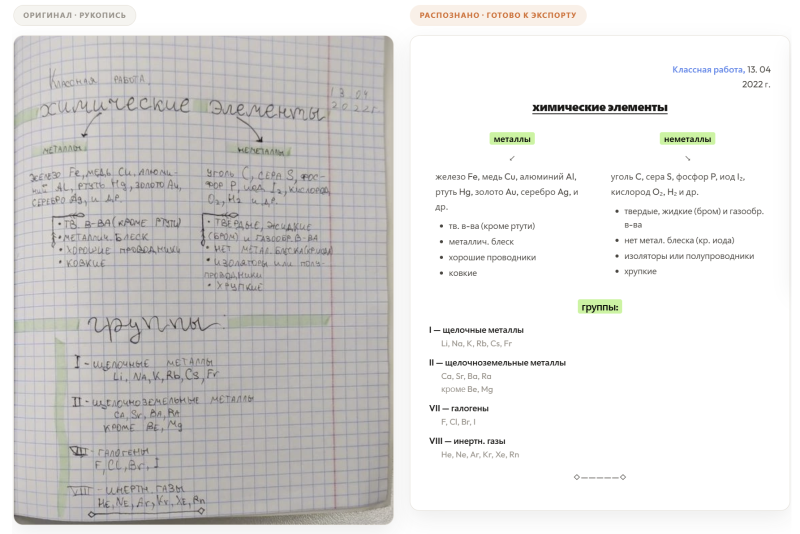 ОРИГИНАЛ · РУКОПИСЬ
Классная работа
13.04
2022г.
химические элементы
металлы
неметаллы
железо Fe, медь Cu, алюми-
ний Al, ртуть Hg, золото Au,
серебро Ag, и др.
• тв. в-ва (кроме ртути)
• металлич. блеск
• хорошие проводники
• ковкие
уголь C, сера S, фос-
фор P, иод I₂, кислород
O₂, H₂ и др.
• твердые, жидкие
(бром) и газообр. в-ва
• нет метал. блеска (кр. иода)
• изоляторы или полу-
проводники
• хрупкие
группы:
I - щелочные металлы
Li, Na, K, Rb, Cs, Fr
II - щелочноземельные металлы
Ca, Sr, Ba, Ra
кроме Be, Mg
VII - галогены
F, Cl, Br, I
VIII - инертн. газы
He, Ne, Ar, Kr, Xe, Rn
РАСПОЗНАНО · ГОТОВО К ЭКСПОРТУ
Классная работа, 13. 04
2022 г.
химические элементы
металлы
неметаллы
железо Fe, медь Cu, алюминий Al,
ртуть Hg, золото Au, серебро Ag, и
др.
• тв. в-ва (кроме ртути)
• металлич. блеск
• хорошие проводники
• ковкие
уголь C, сера S, фосфор P, иод I₂,
кислород O₂, H₂ и др.
• твердые, жидкие (бром) и газообр.
в-ва
• нет метал. блеска (кр. иода)
• изоляторы или полупроводники
• хрупкие
группы:
I — щелочные металлы
Li, Na, K, Rb, Cs, Fr
II — щелочноземельные металлы
Ca, Sr, Ba, Ra
кроме Be, Mg
VII — галогены
F, Cl, Br, I
VIII — инертн. газы
He, Ne, Ar, Kr, Xe, Rn